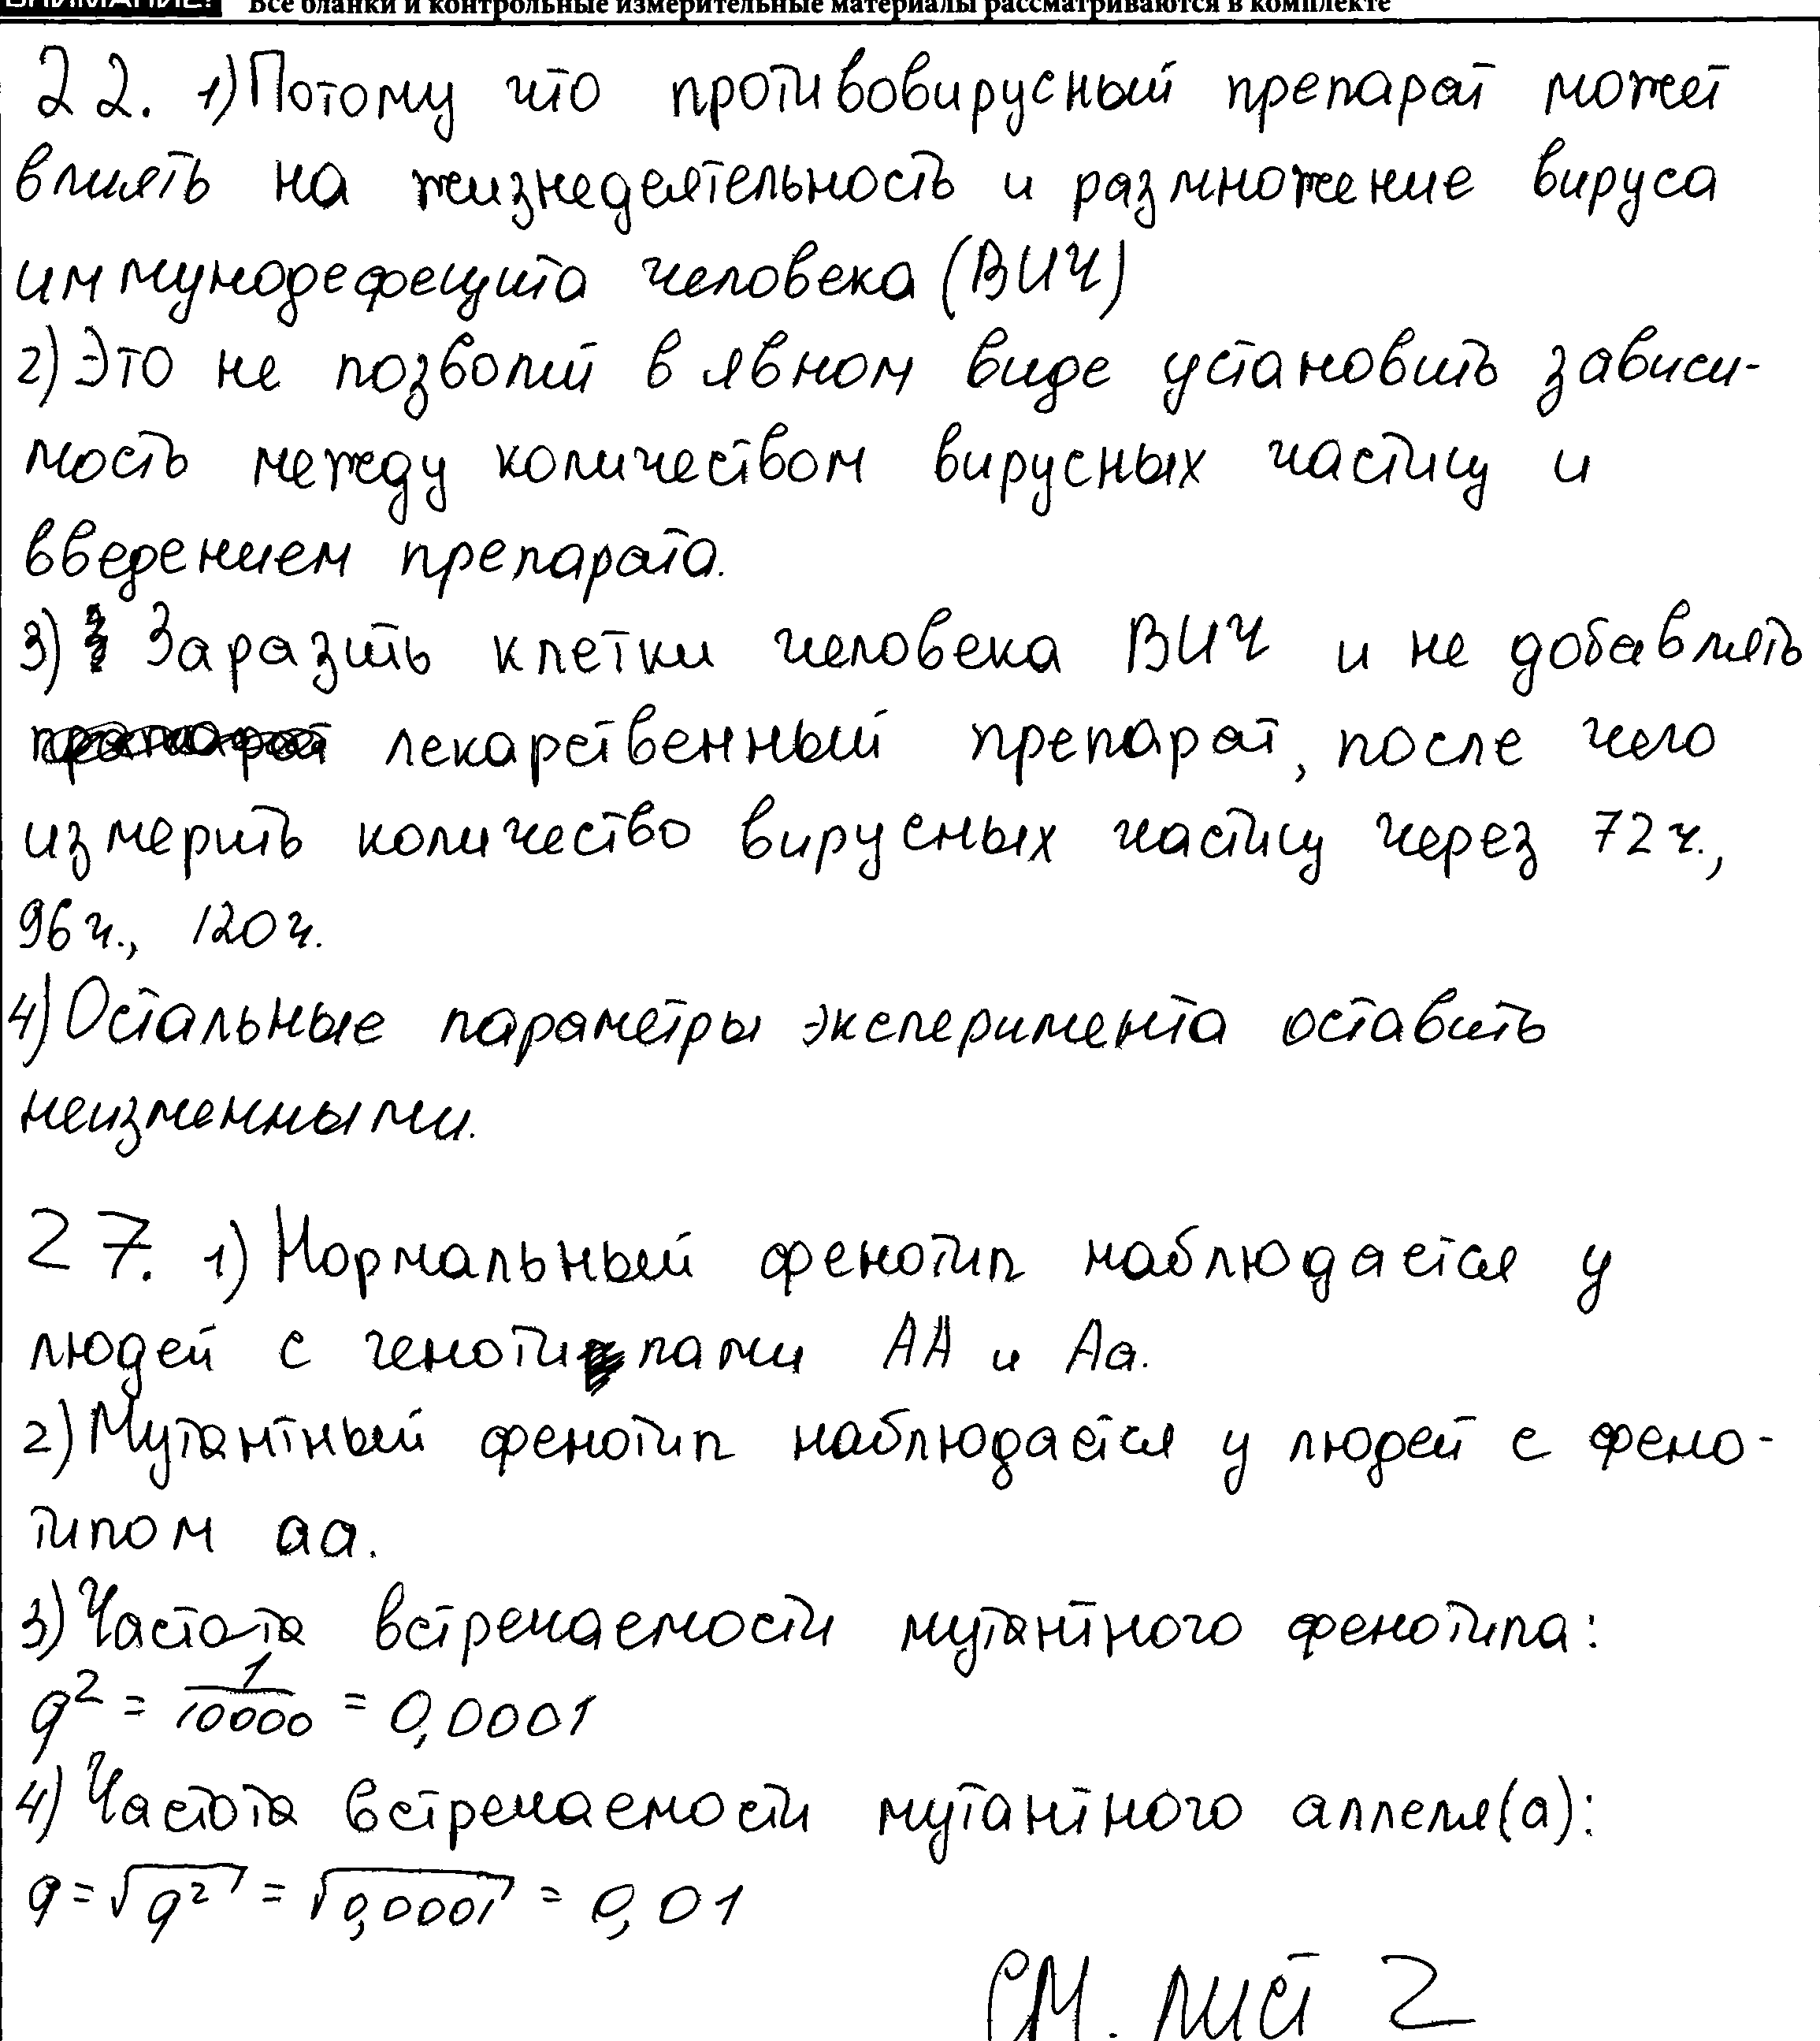 ВНИМАНИЕ! Все бланки и контрольные измерительные материалы рассматриваются в комплекте
22. 1) Потому что противовирусный препарат может
влиять на жизнедеятельность и размножение вируса
иммунодефецита человека (ВИЧ)
2) Это не позволит в явном виде установить зависи-
мость между количеством вирусных частиц и
введением препарата.
3) Заразить клетки человека ВИЧ и не добавлять
лекарственный препарат, после чего
измерить количество вирусных частиц через 72 ч.,
96 ч., 120 ч.
4) Остальные параметры эксперимента оставить
неизменными.
27. 1) Нормальный фенотип наблюдается у
людей с генотипами АА и Аа.
2) Мутантный фенотип наблюдается у людей с фено-
типом аа.
3) Частота встречаемости мутантного фенотипа:
q² = 1/10000 = 0,0001
4) Частота встречаемости мутантного аллеля (а):
q = √q² = √0,0001 = 0,01
СМ. ЛИСТ 2